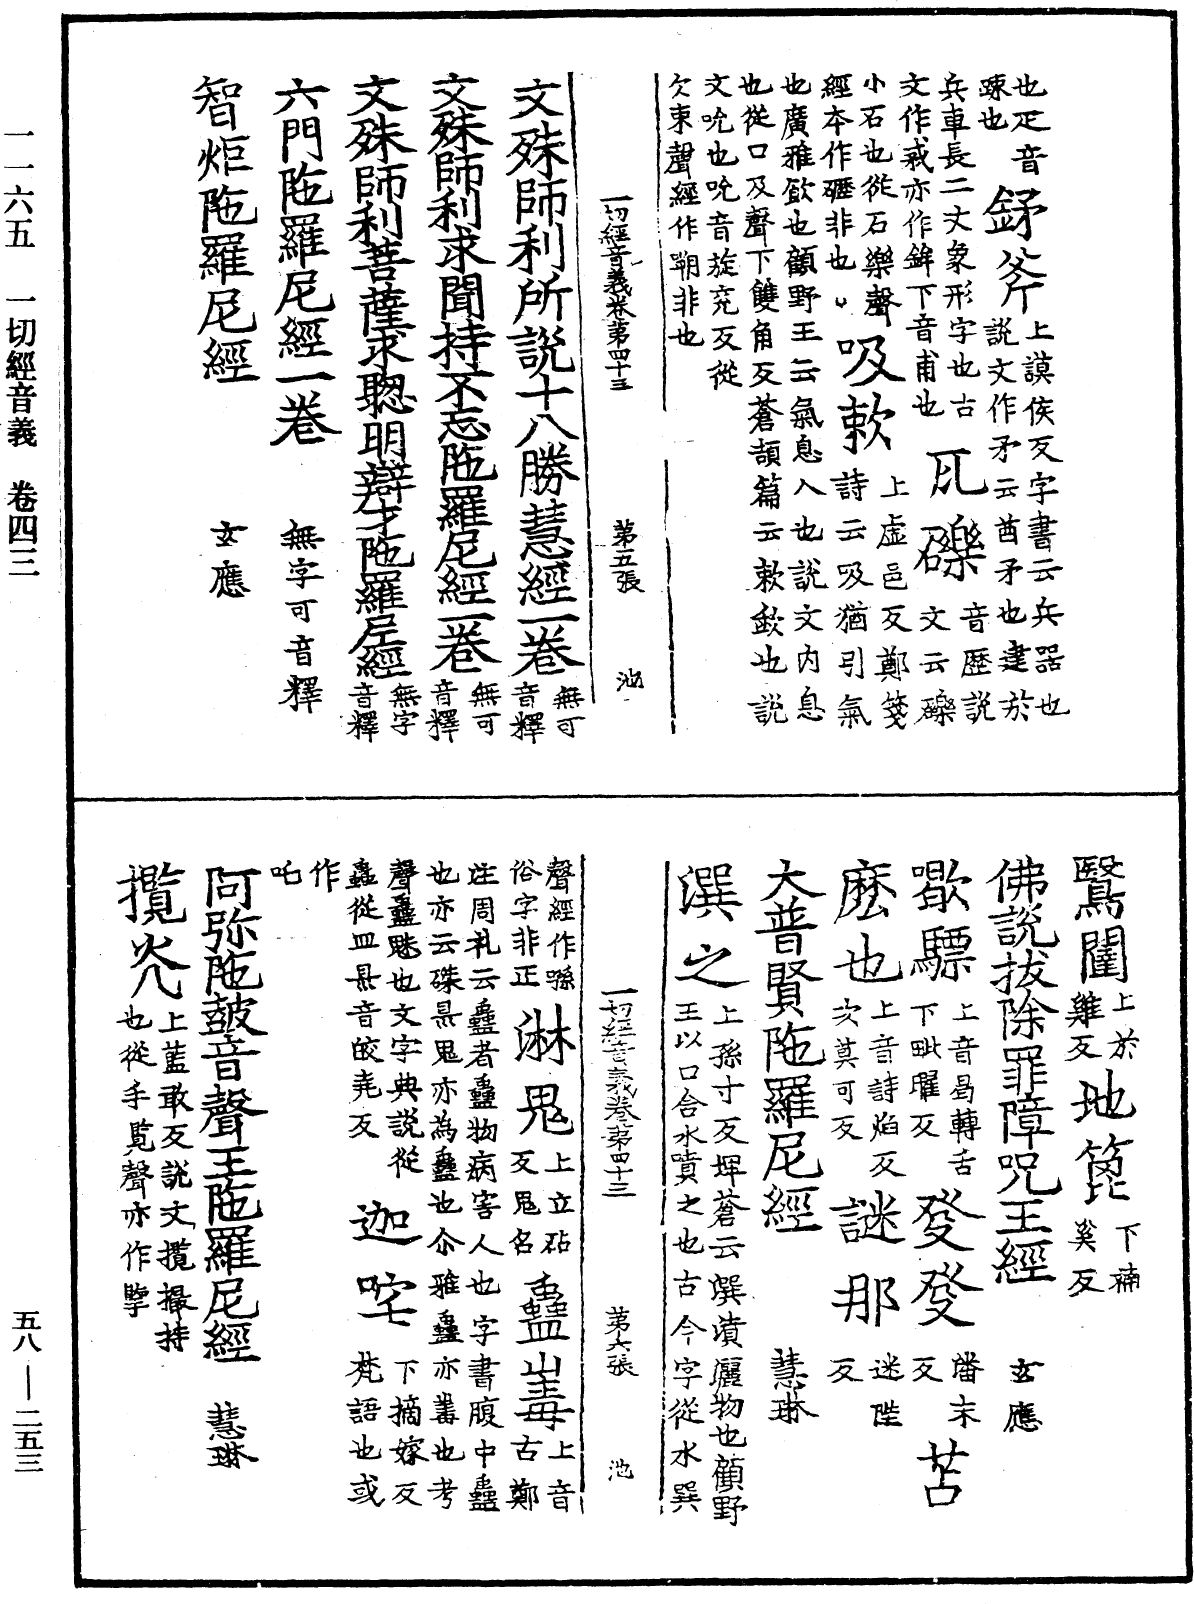 也疋音
疎也
鉾斧
上謨侯反字書云兵器也
說文作矛云酋矛也建於
兵車長二丈象形字也古
文作䂎亦作鉾下音甫也
瓦礫
音歷說
文云礫
小石也從石樂聲
經本作礰非也
吸欶
上虛邑反鄭箋
詩云吸猶引氣
也廣雅飲也顧野王云氣息入也說文內息
也從口及聲下雙角反蒼頡篇云欶歃也說
文吮也吮音旋兖反從
欠束聲經作朔非也
一切經音義卷第四十三 第五張 池
文殊師利所說十八勝慧經一卷 無可音釋
文殊師利求聞持不忘陁羅尼經一卷 無可音釋
文殊師利菩薩求聰明辯才陁羅尼經 無字音釋
六門陁羅尼經一卷 無字可音釋
智炬陁羅尼經 玄應
鷖闍
上於
雞反
地篦
下補
奚反
佛說拔除罪障呪王經 玄應
歇驃
上音曷轉舌
下毗曜反
發發
潘末
反
苫
麽也
上音詩焰反
次莫可反
謎那
迷陛
反
大普賢陁羅尼經 慧琳
潠之
上孫寸反埤蒼云潠濆灑物也顧野
王以口含水噴之也古今字從水巽
一切經音義卷第四十三 第六張 池
聲經作噀
俗字非正
淋鬼
上立砧
反鬼名
蠱毒
上音
古鄭
注周礼云蠱者蠱物病害人也字書腹中蠱
也亦云磔梟鬼亦為蠱也尒雅蠱亦蠚也考
聲蠱魅也文字典說從
蟲從皿梟音皎堯反
迦咤
下摘嫁反
梵語也或
作
吒
阿弥陁鼓音聲王陁羅尼經 慧琳
攬光
上藍敢反說文攬撮持
也從手覧聲亦作擥
一一六五 一切經音義 卷四三
五八——二五三